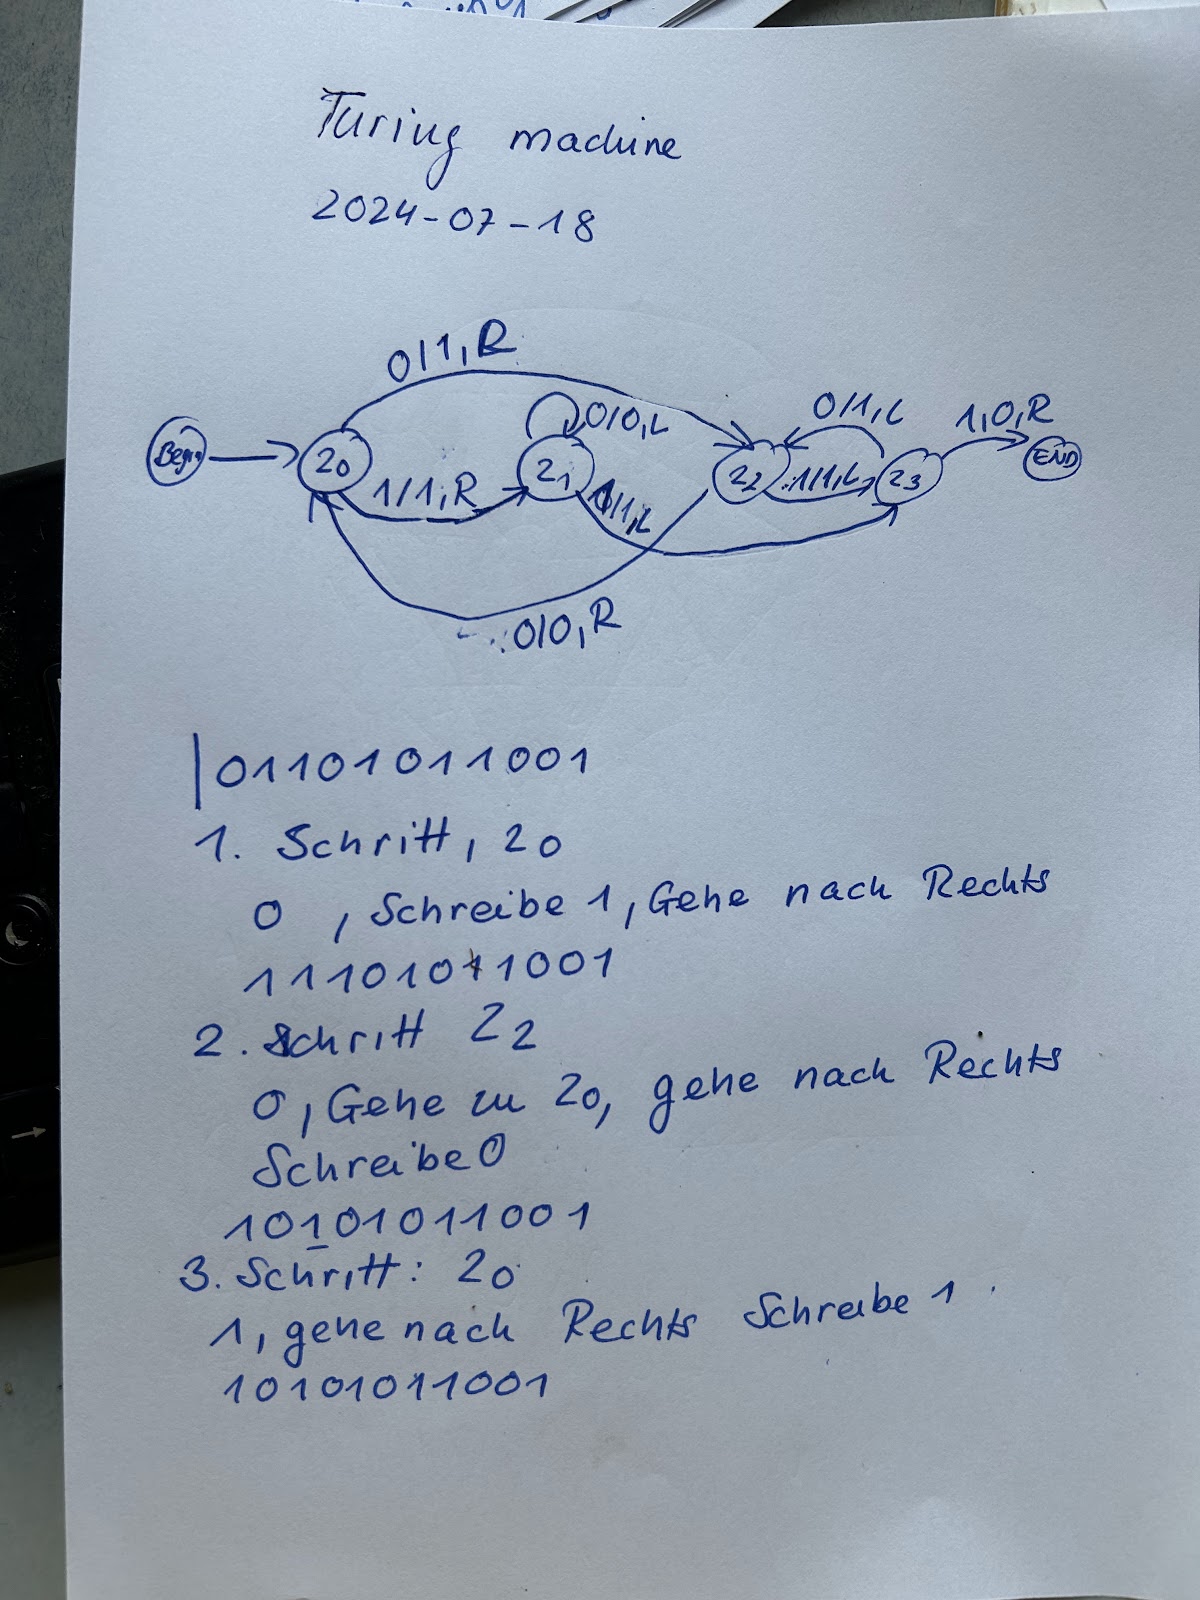 Turing machine
2024-07-18
0/1,R
0/0,L
0/1,L
1,0,R
Begin
z0
1/1,R
z1
1/1,L
z2
1/1,L
z3
END
0/0,R
|01101011001
1. Schritt, z0
0 , Schreibe 1, Gehe nach Rechts
11101011001
2. Schritt Z2
0, Gehe zu z0, gehe nach Rechts
Schreibe 0
10101011001
3. Schritt: z0
1, gehe nach Rechts Schreibe 1
10101011001